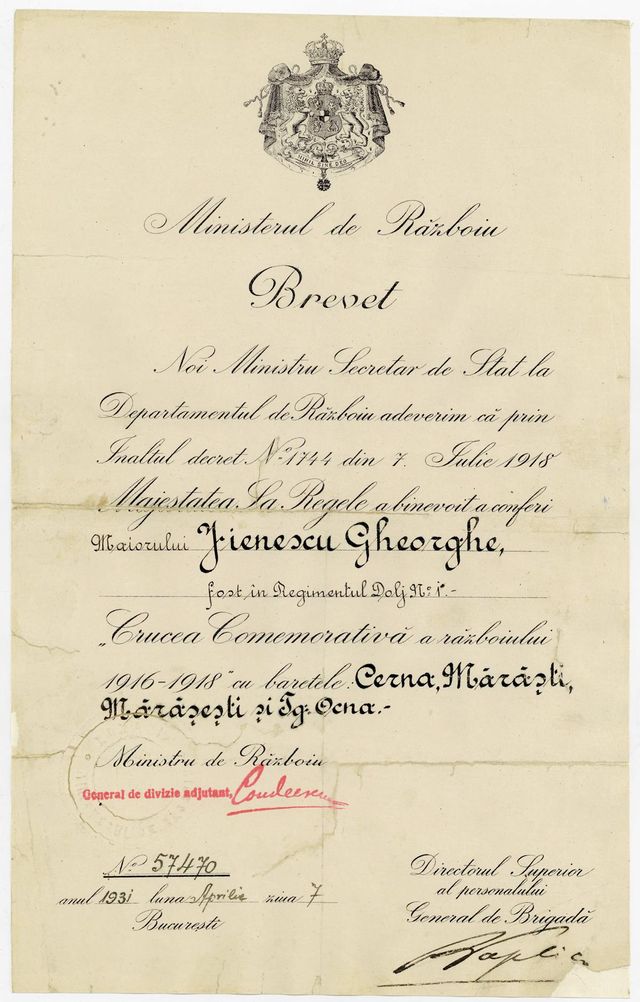 NIHIL SINE DEO
Ministerul de Războiu
Brevet
Noi Ministru Secretar de Stat la
Departamentul de Războiu adeverim că prin
Inaltul decret No. 1744 din 7. Iulie 1918
Majestatea Sa Regele a binevoit a conferi
Maiorului Jienescu Gheorghe,
fost în Regimentul Dolj No. 1.-
„Crucea Comemorativă a războiului
1916-1918" cu baretele: Cerna, Mărăşti,
Mărăşeşti şi Tg. Ocna.-
Ministru de Războiu
General de divizie adjutant, Condeescu
No. 57470
anul 1931 luna Aprilie ziua 7
Bucureşti
Directorul Superior
al personalului
General de Brigadă